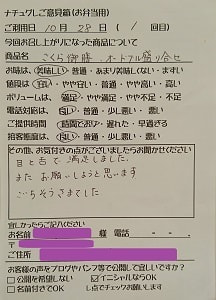 ナチュグレご意見箱(お弁当用)
ご利用日 10月 28日 ( / 回目)
今回お召し上りになった商品について
商品名 さくら御膳 オードブル盛り合せ
お味は、美味しい・普通・あまり美味しくない・まずい
値段は、安い・やや安い・普通・やや高い・高い
ボリュームは、満足・やや満足・やや不足・不足
電話対応は、良い・普通・少し悪い・悪い
ご提供時間 時間どおり・遅れた・早過ぎる
接客態度は、良い・普通・少し悪い・悪い
その他、お気付きの点がございましたらお聞かせください
目と舌で満足しました。
またお願いしようと思います
ごちそうさまでした
宜しかったらご記入ください
お名前 様 電話 - -
〒
ご住所
お客様の声をブログやパンフ等で公開して宜しいですか?
□公開を希望しない ☑イニシャルならOK
□名前もOK レ点でチェックお願いします